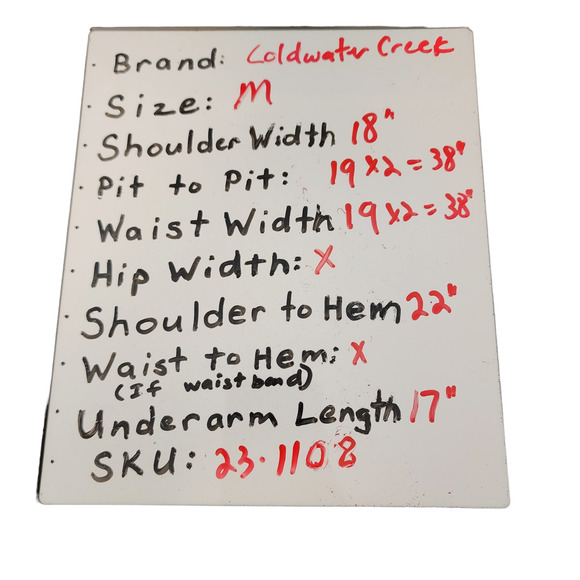 · Brand: Coldwater Creek
· Size: M
· Shoulder Width 18"
· Pit to Pit: 19 x2 = 38"
· Waist Width 19 x2 = 38"
· Hip Width: X
· Shoulder to Hem 22"
· Waist to Hem: X
(If waist band)
· Underarm Length 17"
· SKU: 23·1108